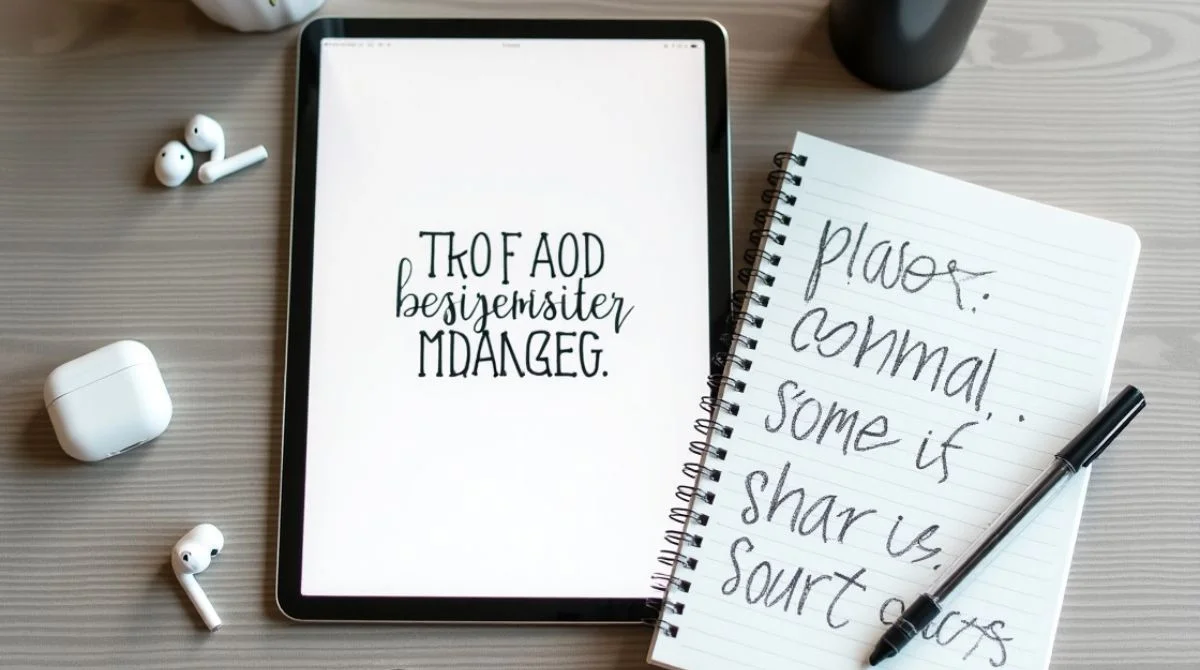 TKO F AOD
besijemsiter
MDANGEG.
plaser.
conmal.
some if
shar is.
Sourt